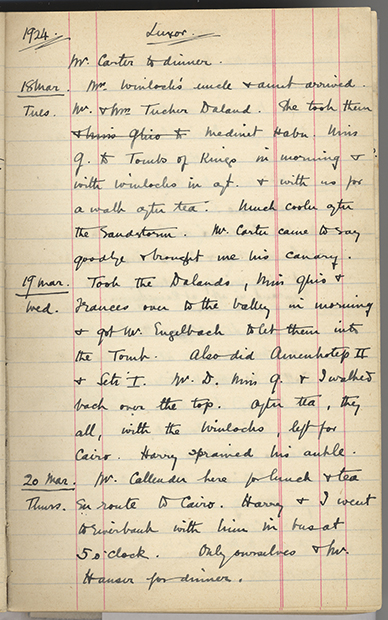 1924. Luxor.
Mr. Carter to dinner.
18 Mar. Mrs Winlock's uncle & aunt arrived.
Tues. Mr. & Mrs Tucher Daland. She took them
& Miss Ghio to Medinet Habu. Miss
G. to Tombs of Kings in morning &
with Winlocks in aft. & with us for
a walk after tea. Much cooler after
the Sandstorm. Mr. Carter came to say
goodbye & brought me his canary.
19 Mar. Took the Dalands, Miss Ghio &
Wed. Frances over to the Valley in morning
& got Mr. Engelbach to let them into
the Tomb. Also did Amenhotep II
& Seti I. Mr. D. Miss G. & I walked
back over the top. After tea, they
all, with the Winlocks, left for
Cairo. Harry sprained his ankle.
20 Mar. Mr. Callender here for lunch & tea
Thurs. En route to Cairo. Harry & I went
to riverbank with him in bus at
5 o'clock. Only ourselves & Mr.
Hauser for dinner.